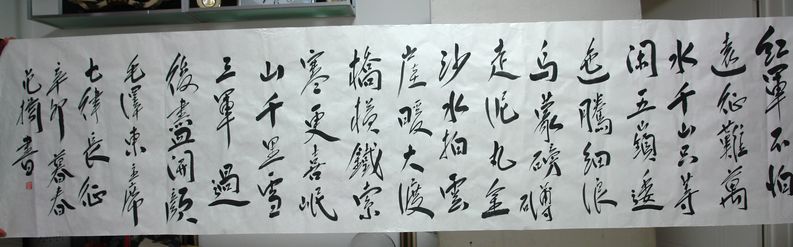 紅軍不怕
遠征難萬
水千山只等
閑五嶺逶
迤騰細浪
烏蒙磅礴
走泥丸金
沙水拍雲
崖暖大渡
橋橫鐵索
寒更喜岷
山千里雪
三軍過
後盡開顏
毛澤東主席
七律長征
辛卯暮春
書